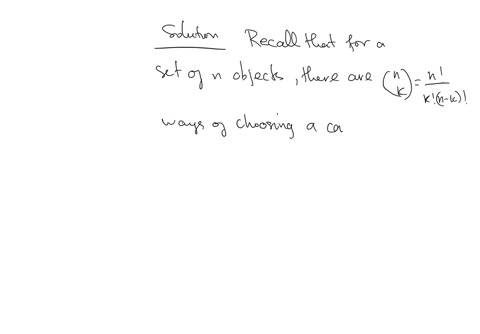 Solution Recall that for a
set of n objects, there are (n k) = n! / k!(n-k)!
ways of choosing a ca